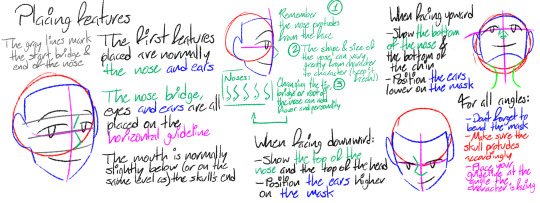 Placing features
The gray lines mark
the start bridge &
end of the nose
The first features
placed are normally
the nose and ears
The nose bridge,
eyes and ears are all
placed on the
horizontal guideline
The mouth is normally
slightly below (or on the
same level as) the skull's end
1
Remember
the nose protrudes
from the face
2
The shape & size of
the nose can vary
greatly from character
to character
Noses:
Changing the tip,
bridge or root of
the nose can add
flavor and personality
3
When facing downward:
-Show the top of the
nose and the top of the head
-Position the ears higher
on the mask
When facing upward
-Show the bottom
of the nose &
the bottom of
the chin
-Position the ears
lower on the mask
For all angles:
-Don't forget to
bend the mask
-Make sure the
skull protrudes
accordingly
-Place your
guideline at the
angle the
character is facing